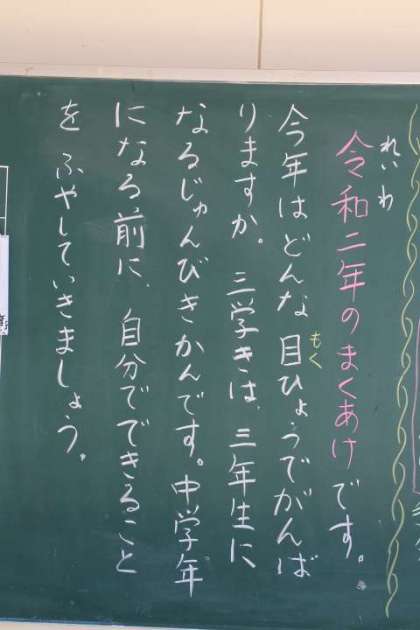 れいわ
令和二年のまくあけです。
もく
今年はどんな目ひょうでがんば
りますか。三学きは、三年生に
なるじゅんびきかんです。中学年
になる前に、自分でできること
をふやしていきましょう。